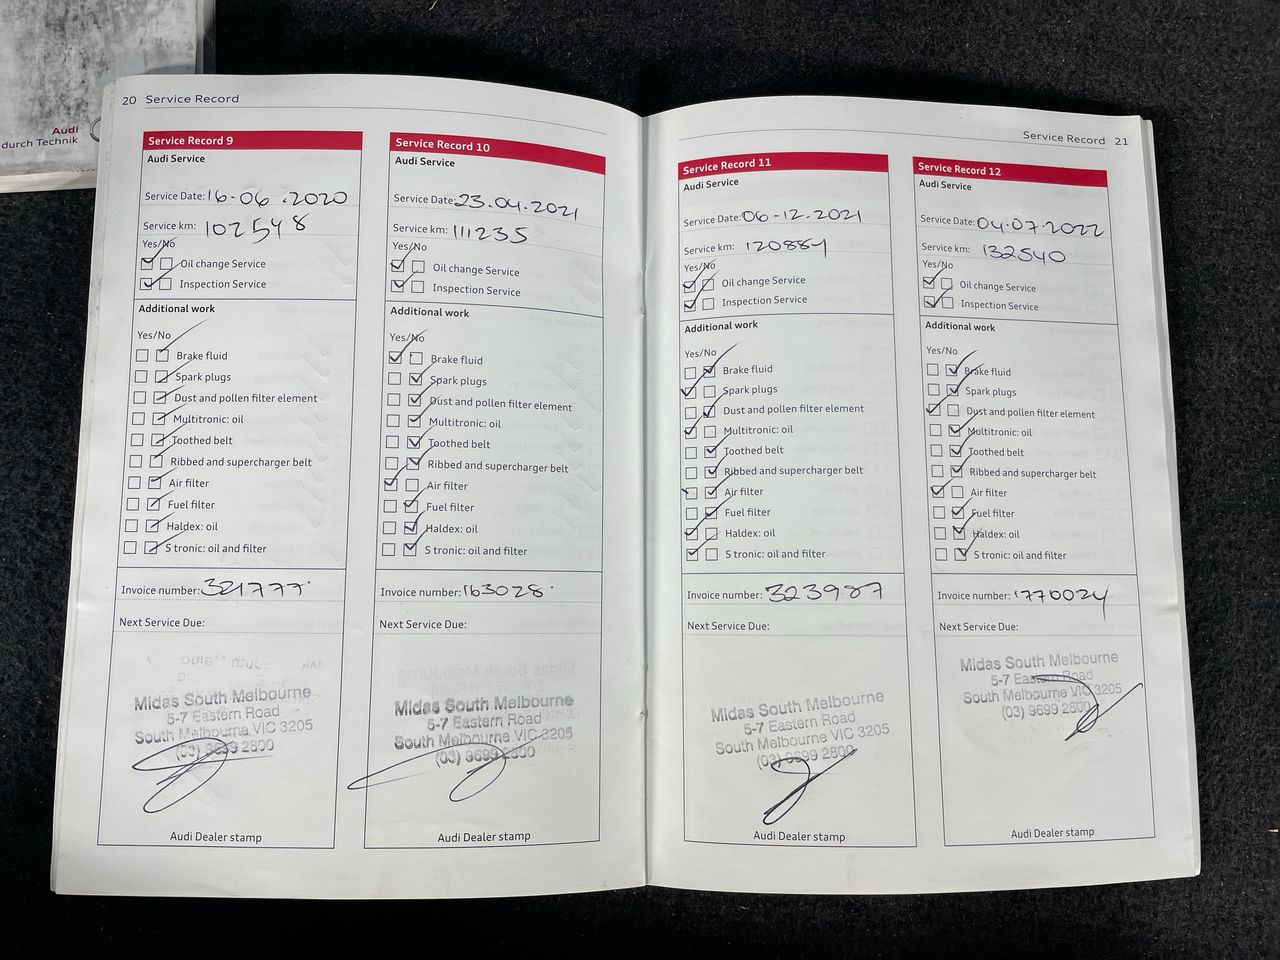 Audi
durch Technik
20 Service Record
Service Record 9
Audi Service
Service Date: 16-06-2020
Service km: 102548
Yes/No
Oil change Service
Inspection Service
Additional work
Yes/No
Brake fluid
Spark plugs
Dust and pollen filter element
Multitronic: oil
Toothed belt
Ribbed and supercharger belt
Air filter
Fuel filter
Haldex: oil
S tronic: oil and filter
Invoice number: 321777
Next Service Due:
Midas South Melbourne
5-7 Eastern Road
South Melbourne VIC 3205
(03) 9699 2800
Audi Dealer stamp
Service Record 10
Audi Service
Service Date: 23.04.2021
Service km: 111235
Yes/No
Oil change Service
Inspection Service
Additional work
Yes/No
Brake fluid
Spark plugs
Dust and pollen filter element
Multitronic: oil
Toothed belt
Ribbed and supercharger belt
Air filter
Fuel filter
Haldex: oil
S tronic: oil and filter
Invoice number: 163028
Next Service Due:
Midas South Melbourne
5-7 Eastern Road
South Melbourne VIC 3205
(03) 9699 2800
Audi Dealer stamp
Service Record 21
Service Record 11
Audi Service
Service Date: 06-12-2021
Service km: 120884
Yes/No
Oil change Service
Inspection Service
Additional work
Yes/No
Brake fluid
Spark plugs
Dust and pollen filter element
Multitronic: oil
Toothed belt
Ribbed and supercharger belt
Air filter
Fuel filter
Haldex: oil
S tronic: oil and filter
Invoice number: 323987
Next Service Due:
Midas South Melbourne
5-7 Eastern Road
South Melbourne VIC 3205
(03) 9699 2800
Audi Dealer stamp
Service Record 12
Audi Service
Service Date: 04.07.2022
Service km: 132540
Yes/No
Oil change Service
Inspection Service
Additional work
Yes/No
Brake fluid
Spark plugs
Dust and pollen filter element
Multitronic: oil
Toothed belt
Ribbed and supercharger belt
Air filter
Fuel filter
Haldex: oil
S tronic: oil and filter
Invoice number: 1770024
Next Service Due:
Midas South Melbourne
5-7 Eastern Road
South Melbourne VIC 3205
(03) 9699 2800
Audi Dealer stamp